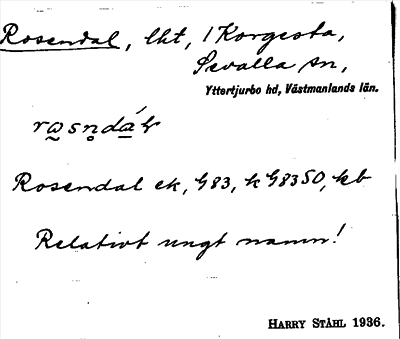 Rosendal, lht, i Korgesta,
Sevalla sn,
Yttertjurbo hd, Västmanlands län.
Rosendal ek, G83, k G83SO, kb
Relativt ungt namn!
HARRY STÅHL 1936.